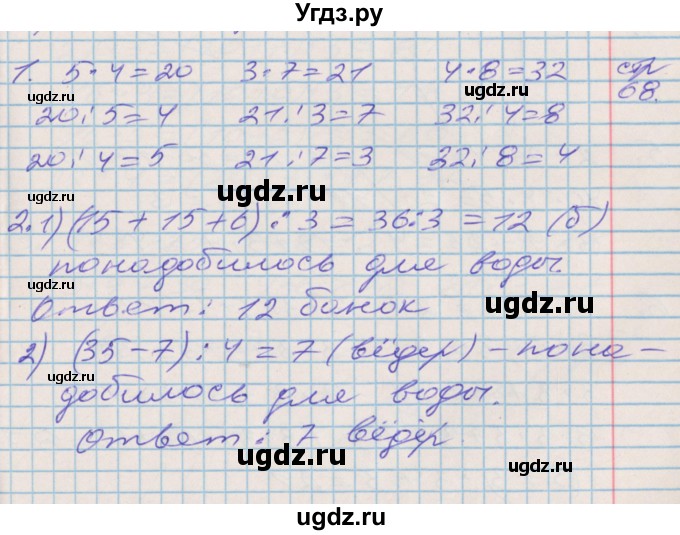 Угдз.ру
1. 5·4=20 3·7=21 4·8=32 стр
ugdz.ru ugdz.ru 68.
20:5=4 21:3=7 32:4=8
20:4=5 21:7=3 32:8=4
ugdz.ru ugdz.ru
2.1) (15+15+6):3=36:3=12 (б)
ugdz.ru
понадобилось для воды.
Ответ: 12 банок
ugdz.ru
2) (35-7):4=7 (вёдер) - пона-
ugdz.ru
добилось для воды.
Ответ: 7 вёдер
ugdz.ru ugdz.ru
ugdz.ru